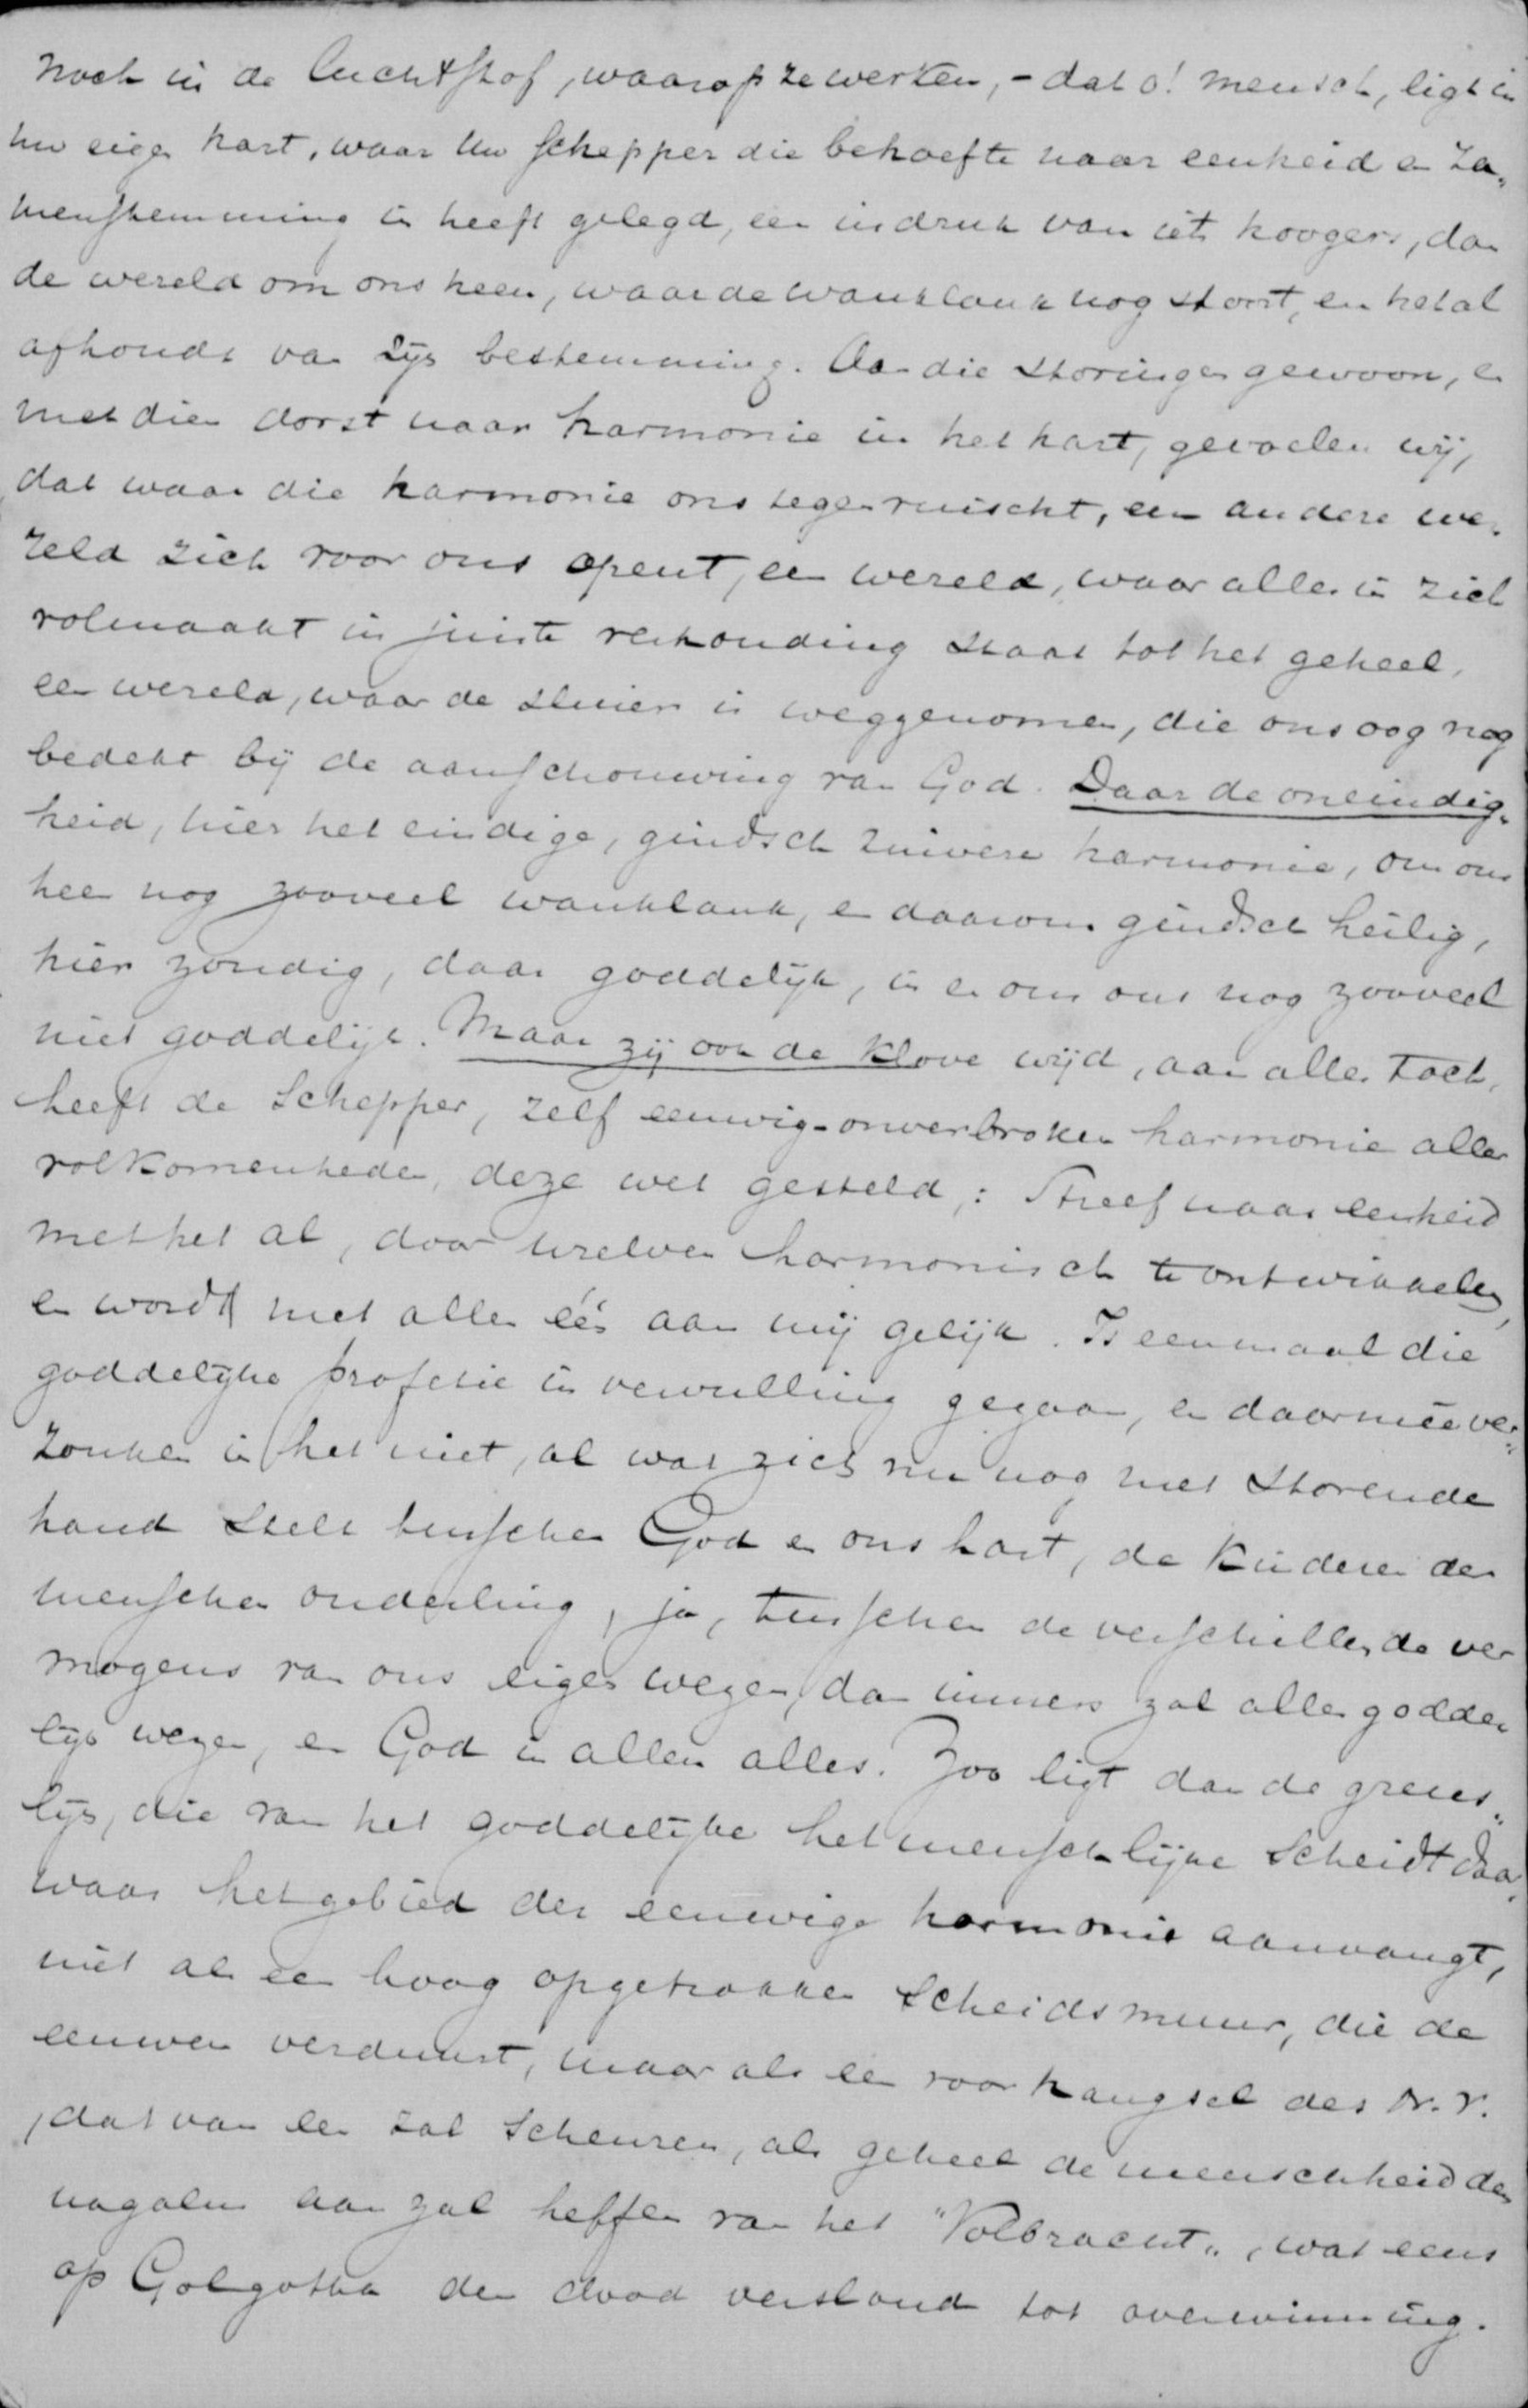 noch in de luchtstof, waarop ze werken, - dat o! mensch, ligt in
uw eigen hart, waar Uw schepper die behoefte naar eenheid en za-
menstemming in heeft gelegd, een indruk van iets hoogers, dan
de wereld om ons heen, waar de wanklank nog stoort, en het al
afhoudt van zijn bestemming. Aan die storingen gewoon, en
met dien dorst naar harmonie in het hart, gevoelen wij,
dat waar die harmonie ons tegenruischt, een andere we-
reld zich voor ons opent, een wereld, waar alles in zich
volmaakt in juiste verhouding staat tot het geheel,
een wereld, waar de sluier is weggenomen, die ons oog nog
bedekt bij de aanschouwing van God. Daar de oneindig-
heid, hier het eindige, gindsch zuivere harmonie, om ons
heen nog zooveel wanklank, en daarom gindsch heilig,
hier zondig, daar goddelijk, is er om ons nog zooveel
niet goddelijk. Maar zij ook de klove wijd, aan alles toch,
heeft de Schepper, zelf eeuwig-onverbroken harmonie aller
volkomenheden, deze wet gesteld,: Streef naar eenheid
met het al, door uzelven harmonisch te ontwikkelen,
en wordt met allen één aan mij gelijk. Is eenmaal die
goddelijke profetie in vervulling gegaan, en daarmeê ver-
zonken in het niet, al wat zich nu nog met storende
hand stelt tusschen God en ons hart, de kinderen der
menschen onderling, ja, tusschen de verschillende ver
mogens van ons eigen wezen, dan immers zal alles godde-
lijk wezen, en God in allen alles. Zoo ligt dan de grens-
lijn, die van het goddelijke het menschlijke scheidt daar,
waar het gebied der eeuwige harmonie aanvangt,
niet als een hoog opgetrokken scheidsmuur, die de
eeuwen verduurt, maar als een voorhangsel des O. V.
, dat van een zal scheuren, als geheel de menschheid den
nagalm aan zal heffen van het "Volbracht", wat eens
op Golgotha den dood verslond tot overwinning.